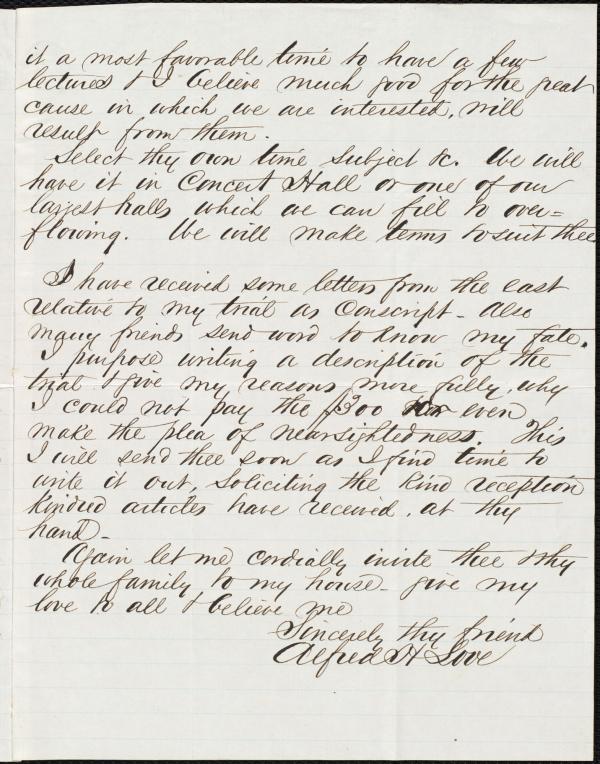 it a most favorable time to have a few
lectures & I believe much good for the great
cause in which we are interested, will
result from them.
Select thy own time subject &c. We will
have it in Concert Hall or one of our
largest halls which we can fill to over=
flowing. We will make terms to suit thee
I have received some letters from the east
relative to my trial as Conscript - Also
many friends send word to know my fate.
I purpose writing a description of the
trial & give my reasons more fully, why
I could not pay the $300 nor even
make the plea of nearsightedness. This
I will send thee soon as I find time to
write it out, soliciting the kind reception
kindred articles have received, at thy
hand -
Again let me cordially invite thee & thy
whole family to my house - give my
love to all & believe me
Sincerely thy friend
Alfred H Love